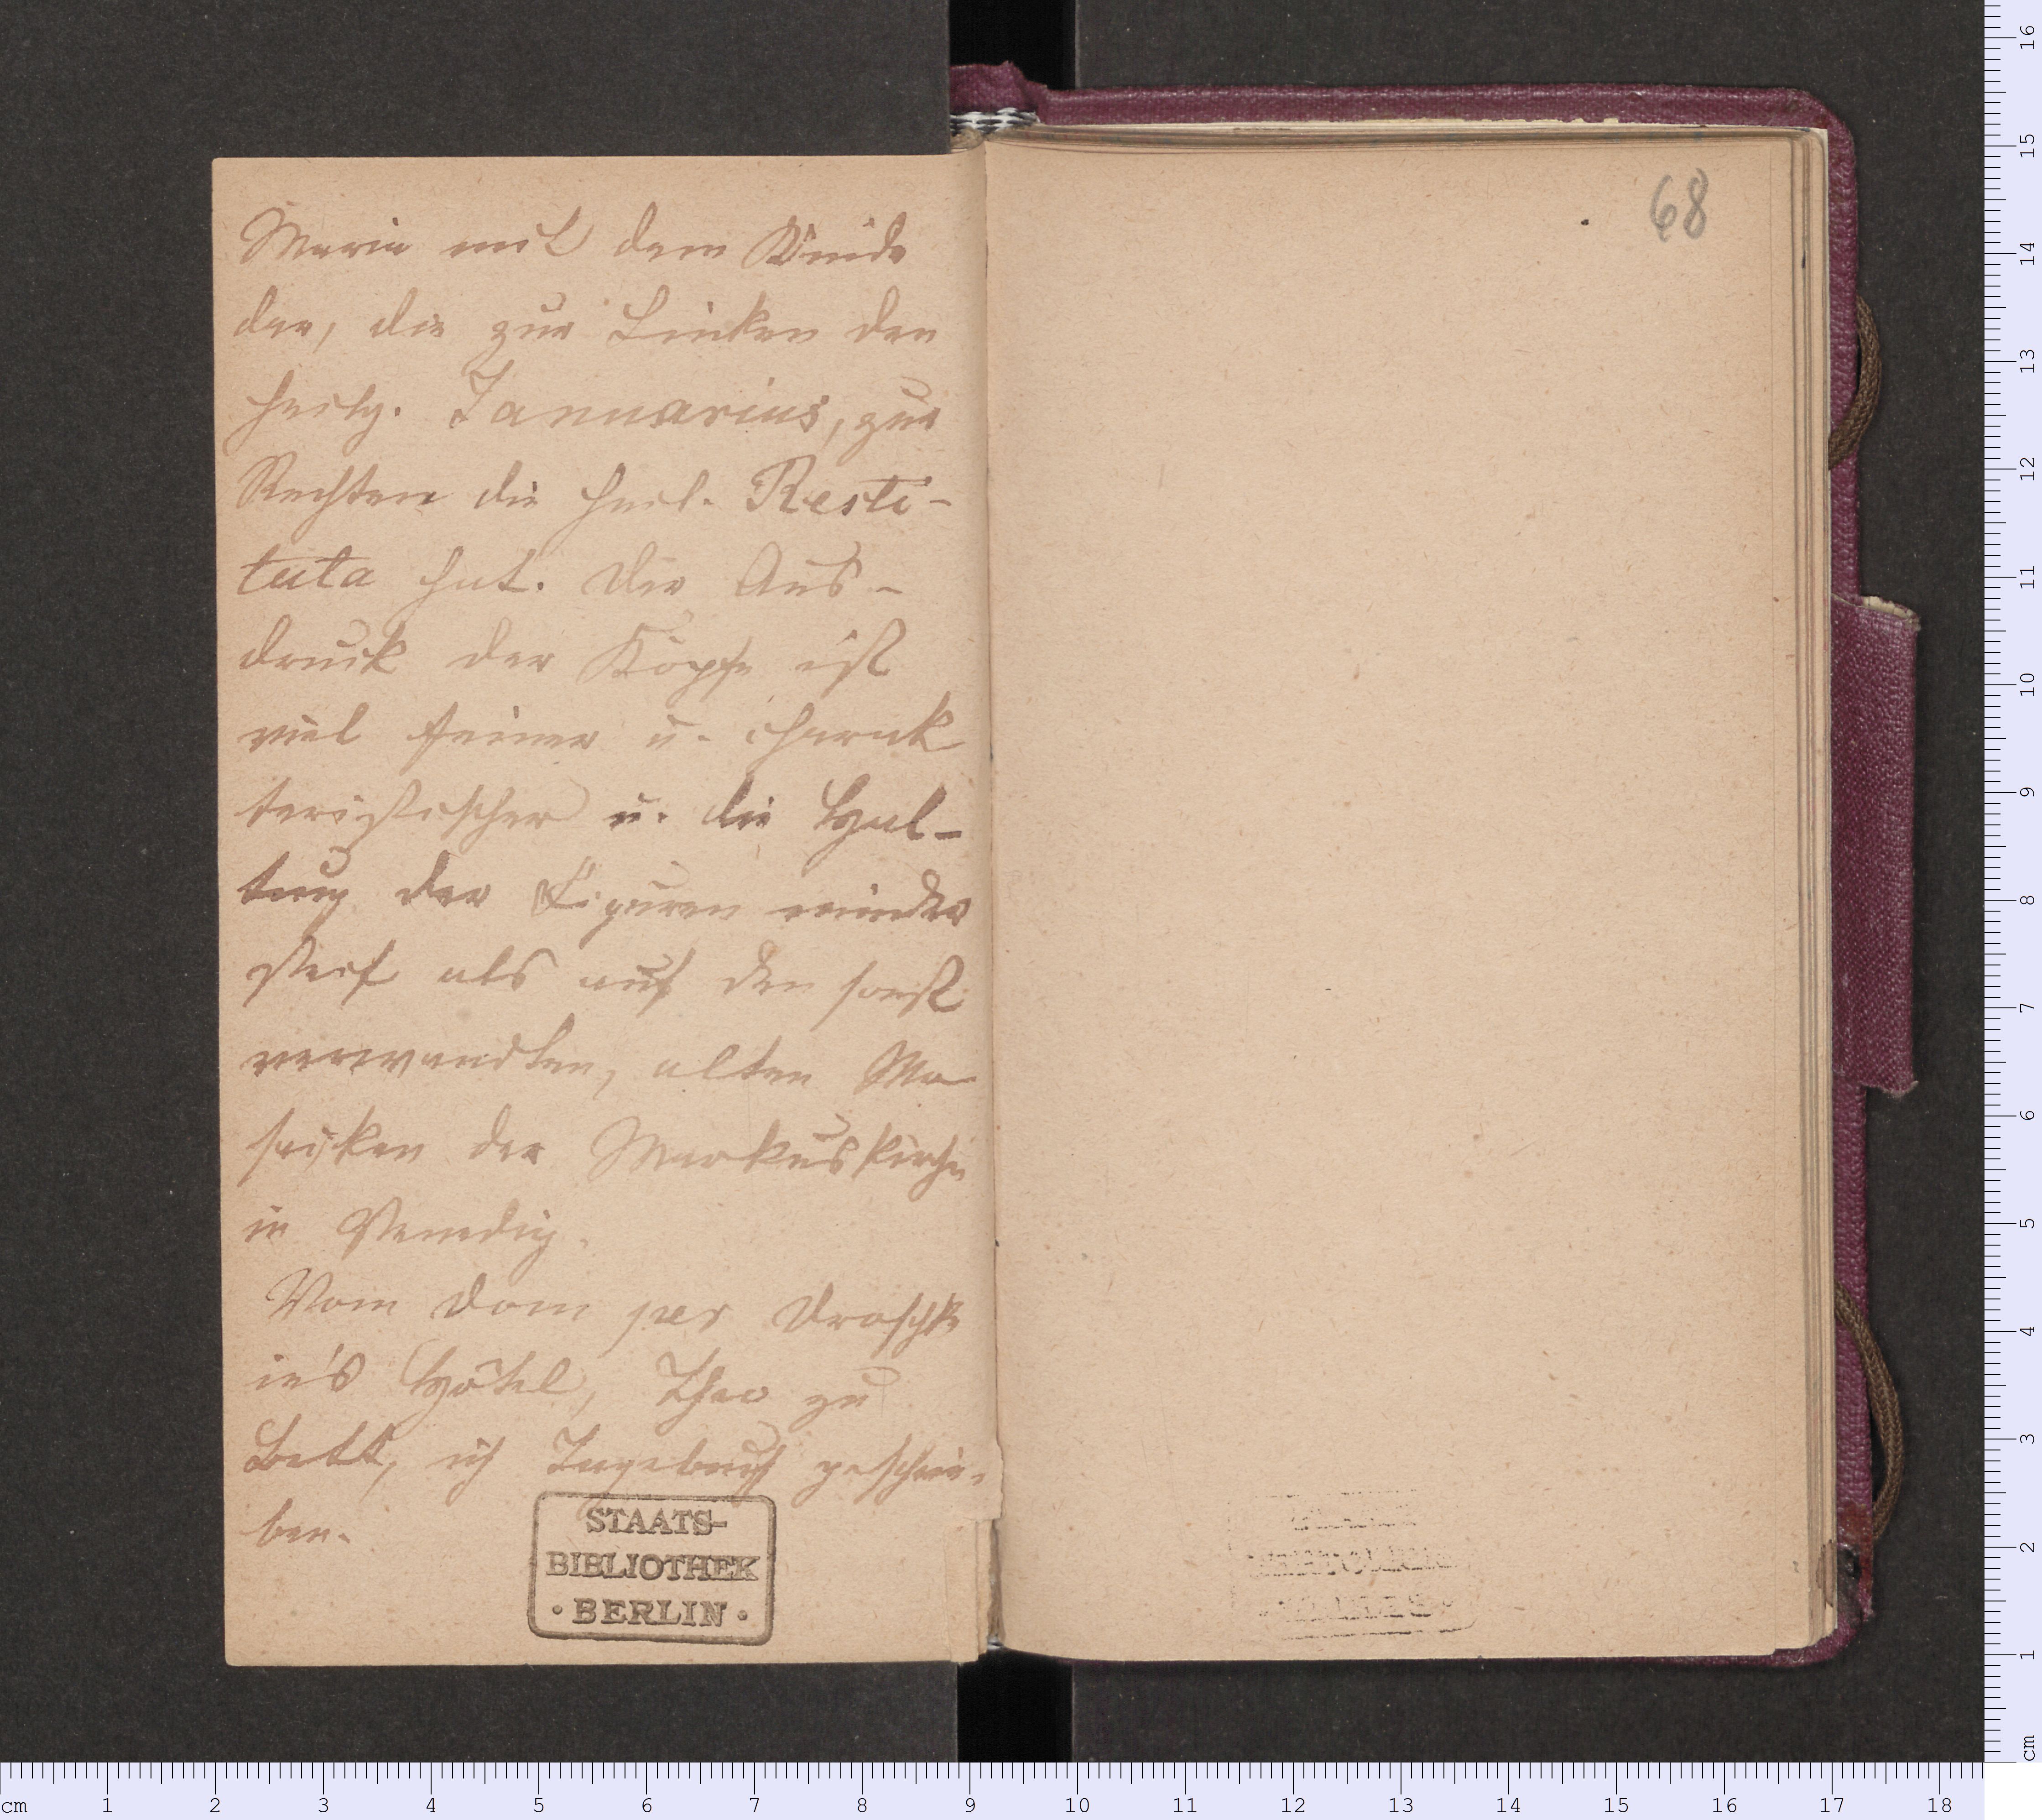 Maria mit dem Kinde
dar, die zur Linken den
heilg. Januarius, zur
Rechten die heil. Resti-
tuta hat. Der Aus-
druck der Köpfe ist
viel feiner u. charak
teristischer u. die Hal-
tung der Figuren minder
steif als auf den sonst
verwandten, alten Mo
saiken der Markuskirche
in Venedig.
Vom Dom per Droschke
in's Hôtel, Theo zu
Bett, ich Tagebuch geschrie-
ben.
STAATS-
BIBLIOTHEK
• BERLIN •
68